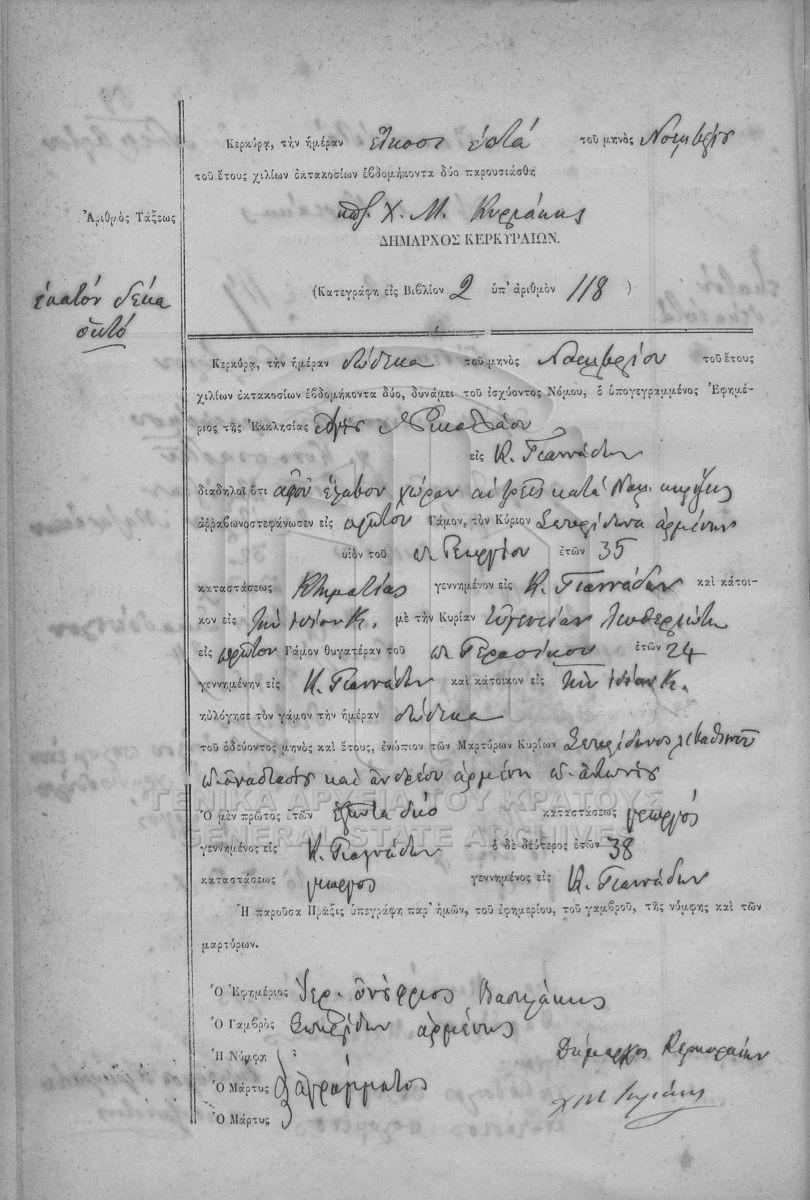 Κερκύρᾳ, τὴν ἡμέραν εἴκοσι ἑπτά τοῦ μηνὸς Νοεμβρίου
τοῦ ἔτους χιλίων ὀκτακοσίων ἑβδομήκοντα δύο παρουσιάσθη
Χ. Μ. Κυριάκης
Ἀριθμὸς Τάξεως
ΔΗΜΑΡΧΟΣ ΚΕΡΚΥΡΑΙΩΝ.
ἑκατόν δέκα
ὀκτώ
(Κατεγράφη εἰς Βιβλίον 2 ὑπ' ἀριθμὸν 118)
Κερκύρᾳ, τὴν ἡμέραν δώδεκα τοῦ μηνὸς Νοεμβρίου τοῦ ἔτους
χιλίων ὀκτακοσίων ἑβδομήκοντα δύο, δυνάμει τοῦ ἰσχύοντος Νόμου, ὁ ὑπογεγραμμένος Ἐφημέ-
ριος τῆς Ἐκκλησίας Νικολάου
εἰς Κ. Γιαννάδων
διαδηλοῖ ὅτι ἀφοῦ ἔλαβον χώραν αἱ τρεῖς κατά Νόμ. κηρύξεις
ἀρραβωνοστεφάνωσεν εἰς πρῶτον Γάμον, τὸν Κύριον Σπυρίδωνα ἀρμένην
υἱὸν τοῦ π. Γεωργίου ἐτῶν 35
καταστάσεως Κτηματίας γεννημένον εἰς Κ. Γιαννάδων καὶ κάτοι-
κον εἰς τὴν ἰδίαν Κ. μὲ τὴν Κυρίαν Εὐγενείαν Λευθεριώτη
εἰς πρῶτον Γάμον θυγατέραν τοῦ π. Γερασίμου ἐτῶν 24
γεννημένην εἰς Κ. Γιαννάδων καὶ κάτοικον εἰς τὴν ἰδίαν Κ.
ηὐλόγησε τὸν γάμον τὴν ἡμέραν δώδεκα
τοῦ ὁδεύοντος μηνὸς καὶ ἔτους, ἐνώπιον τῶν Μαρτύρων Κυρίων Σπυρίδωνος
π. ἀναστάση καὶ ἀνδρέου ἀρμένη π. ἀντώνη
ΓΕΝΙΚΑ ΑΡΧΕΙΑ ΤΟΥ ΚΡΑΤΟΥΣ
Ὁ μὲν πρῶτος ἐτῶν ἑξῆντα δύο καταστάσεως γεωργός
GENERAL STATE ARCHIVES
γεννημένος εἰς Κ. Γιαννάδων ὁ δὲ δεύτερος ἐτῶν 38
καταστάσεως γεωργός γεννημένος εἰς Κ. Γιαννάδων
Ἡ παροῦσα Πρᾶξις ὑπεγράφη παρ' ἡμῶν, τοῦ ἐφημερίου, τοῦ γαμβροῦ, τῆς νύμφης καὶ τῶν
μαρτύρων.
Ὁ Ἐφημέριος Ἱερ. ὀνούφριος Βασιλάκης
Ὁ Γαμβρὸς Σπυρίδων ἀρμένης
Ἡ Νύμφη
Δήμαρχος Κερκυραίων
Ὁ Μάρτυς ἀγράμματος
Χ Μ Κυριάκης
Ὁ Μάρτυς